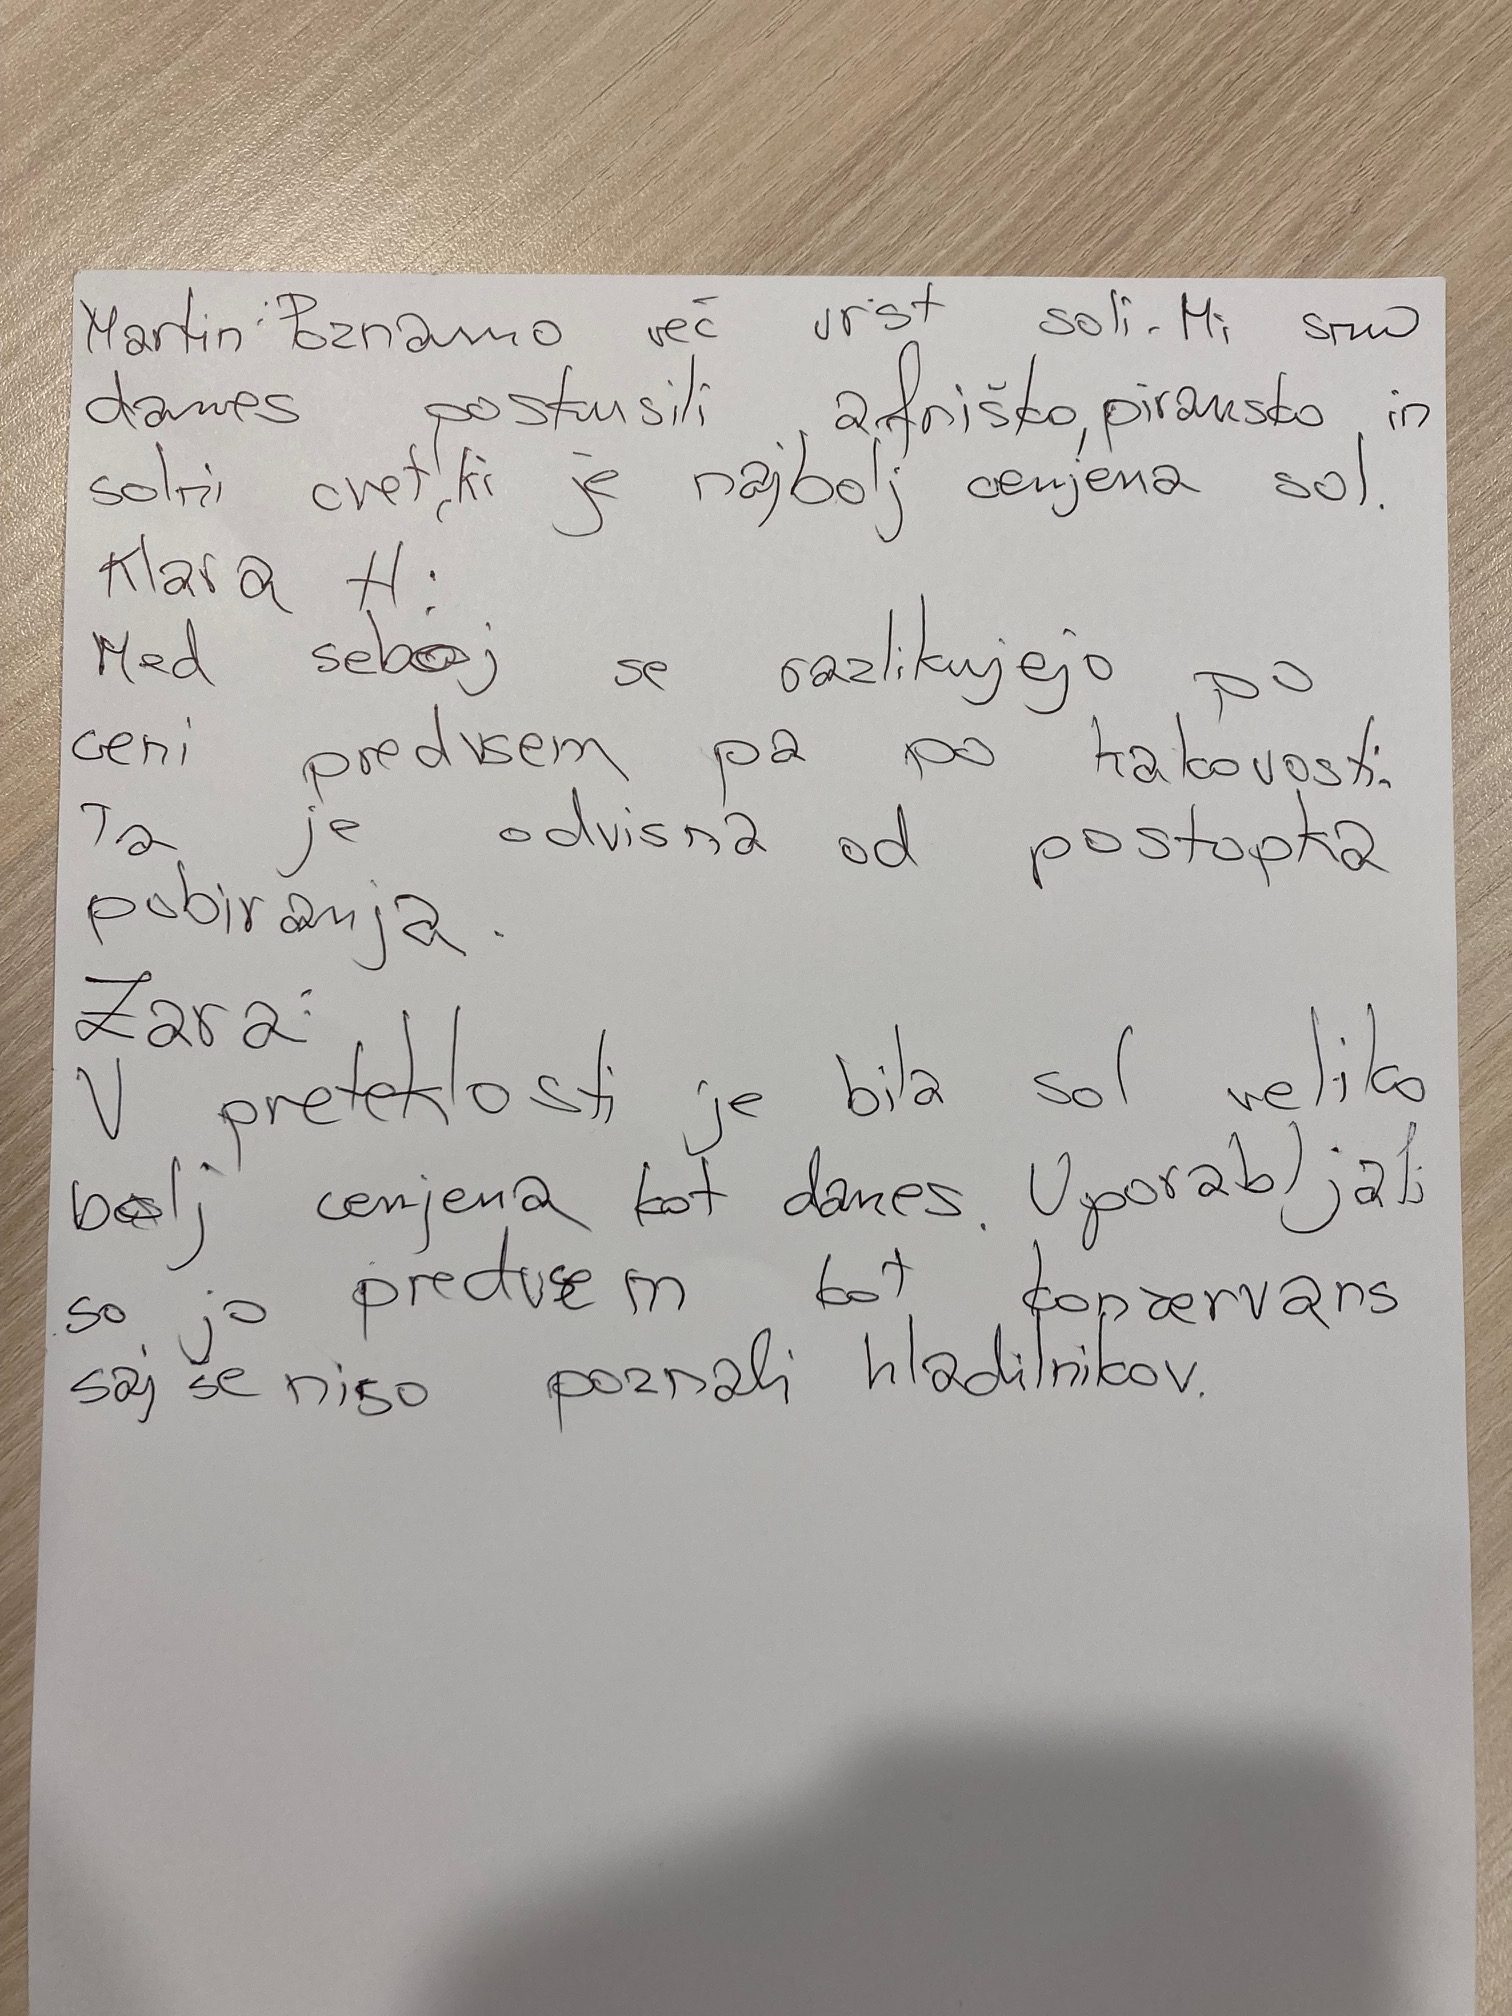 Martin: Poznamo več vrst soli. Mi smo
danes poskusili afriško, piransko in
solni cvet, ki je najbolj cenjena sol.
Klara H:
Med seboj se razlikujejo po
ceni predvsem pa po kakovosti.
Ta je odvisna od postopka
pobiranja.
Zara:
V preteklosti je bila sol veliko
bolj cenjena kot danes. Uporabljali
so jo predvsem kot konzervans
saj še niso poznali hladilnikov.